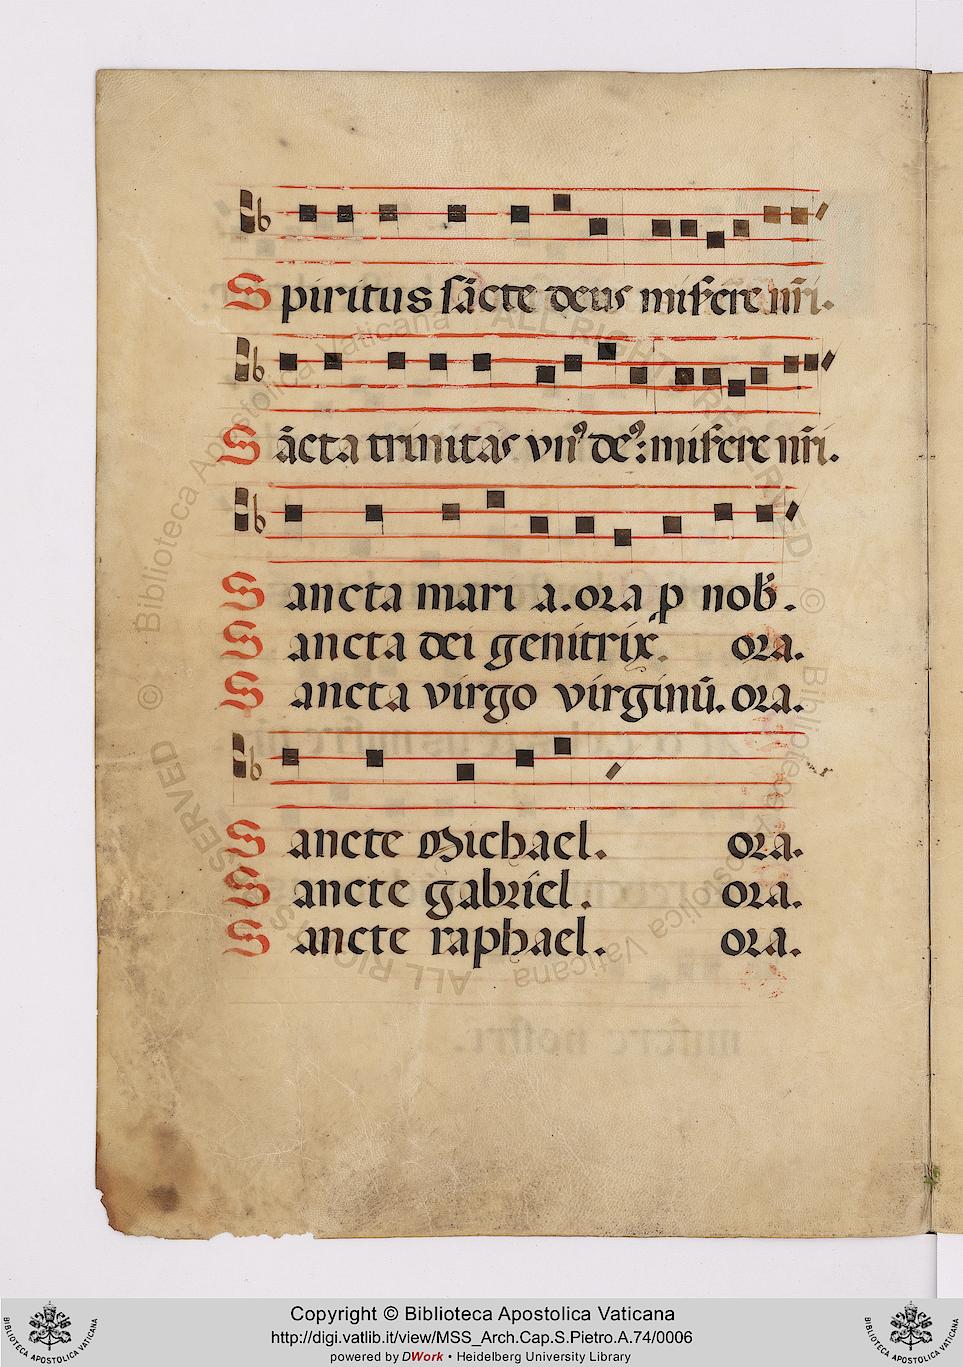 Spiritus sācte deus miserere nr̄i.
Sācta trinitas vnꝰ deꝰ: miserere nr̄i.
Sancta maria. ora p nob̄.
Sancta dei genitrix. ora.
Sancta virgo virginū. ora.
Sancte Michael. ora.
Sancte gabriel. ora.
Sancte raphael. ora.
Copyright © Biblioteca Apostolica Vaticana
http://digi.vatlib.it/view/MSS_Arch.Cap.S.Pietro.A.74/0006
powered by DWork • Heidelberg University Library
BIBLIOTECA APOSTOLICA VATICANA
BIBLIOTECA APOSTOLICA VATICANA
© Biblioteca Apostolica Vaticana ALL RIGHTS RESERVED
© Biblioteca Apostolica Vaticana ALL RIGHTS RESERVED